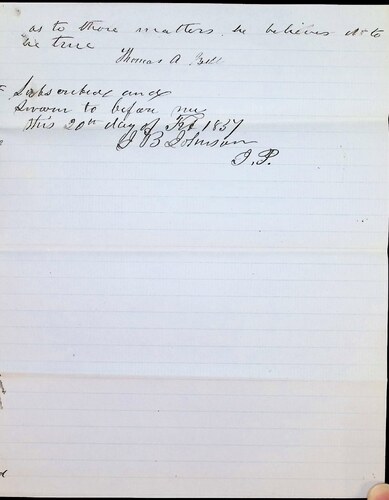 as to those matters he believes it to
be true
Thomas A. Bell
Subscribed and
Sworn to before me
this 20th day of Feb 1857
J B Johnson
J.P.